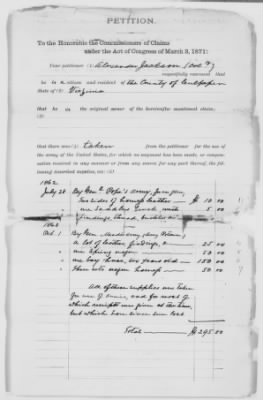 PETITION.
To the Honorable the Commissioners of Claims
under the Act of Congress of March 3, 1871:
Your petitioner (1) Alexander Jackson (Col'd)
respectfully represent that
he is a citizen and resident of the County of Culpeper
State of (2) Virginia
that he is the original owner of the hereinafter mentioned claim.
(3)
that there were (4) taken from the petitioner for the use of
the army of the United States, for which no payment has been made, or compen-
sation received in any manner or from any source for any part thereof, the fol-
lowing described supplies, viz: (5)
1862
July 20 By Genl Pope's army,
Two sides of harness leather — $ 10 00
one 5 00
findings, thread, buckles
1863
Oct. 1 By Gen. Meade's army
A lot of leather findings, — 25 00
one spring wagon — 50 00
one bay horse, six years old — 150 00
three sets wagon harness — 50 00
All of these supplies were taken
for use of army, and for most of
which receipts were given at the time,
but which have since been lost
Total — $ 295.00